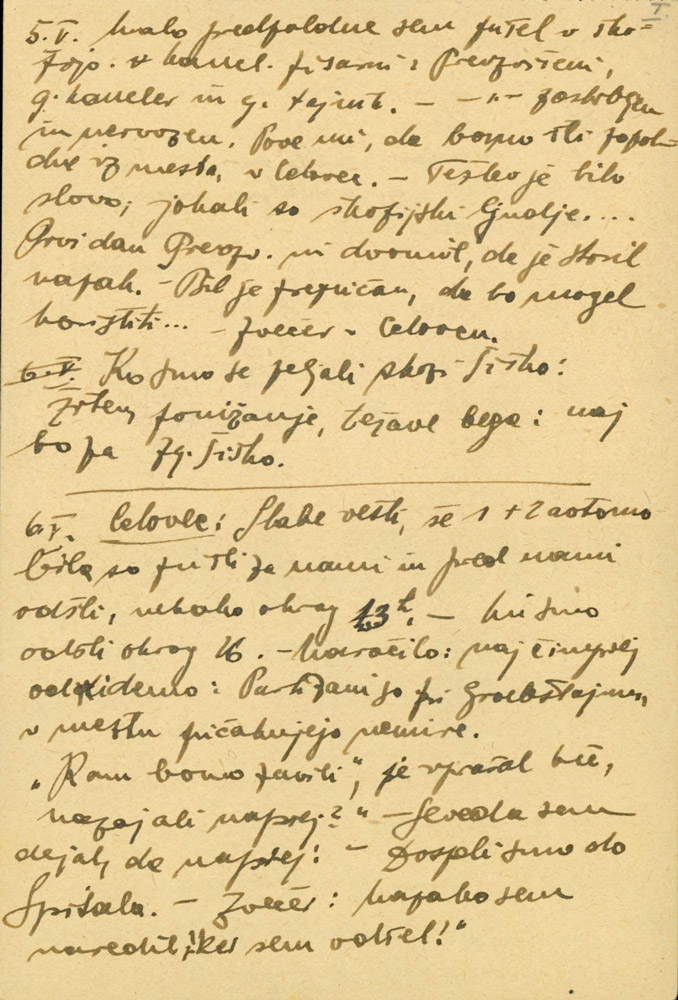 I.
5. V. malo predpoldne sem prišel v ško-
fijo. v kancel. pisarni: Prevzvišeni,
g. kancler in g. tajnik. — — " — zaskrbljen
in nervozen. Pove mi, da bomo šli popol-
dne iz mesta, v Celovec. — Težko je bilo
slovo; jokali so škofijski ljudje....
Prvi dan Prevzv. ni dvomil, da je storil
napak. — Bil je prepričan, da bo mogel
koristiti... — Zvečer v Celovcu.
6. V. Ko smo se peljali skozi Šiško:
ponižanje, težave bega: naj
bo pa Zg. Šiško.
6. V. Celovec: Slabe vesti, še 1 + 2 avtomo
bila so prišli za nami in pred nami
odšli, nekako okrog 13h. — Mi smo
odšli okrog 16. — Naročilo: naj čimprej
odidemo: Partizani so pri Grobštajnu,
v mestu pričakujejo nemire.
„Kam bomo zavili", je vprašal
nazaj ali naprej?" — Seveda sem
dejal, da naprej! — Dospeli smo do
Špitala. — Zvečer: napako sem
naredil, ker sem odšel!"